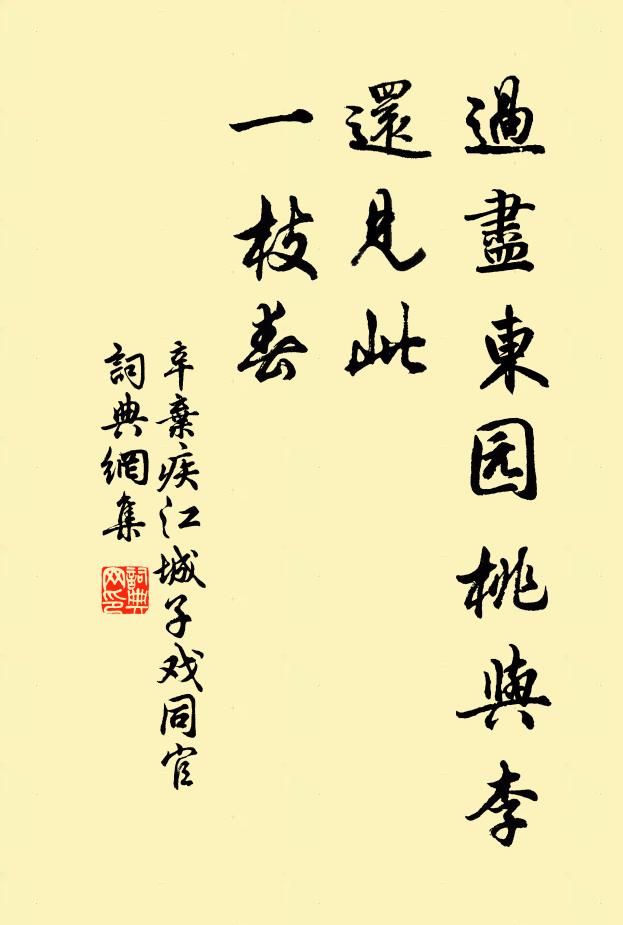 過盡東园桃與李
還見此
一枝春
辛棄疾江城子戏同官
詞典網集
詞典
网印